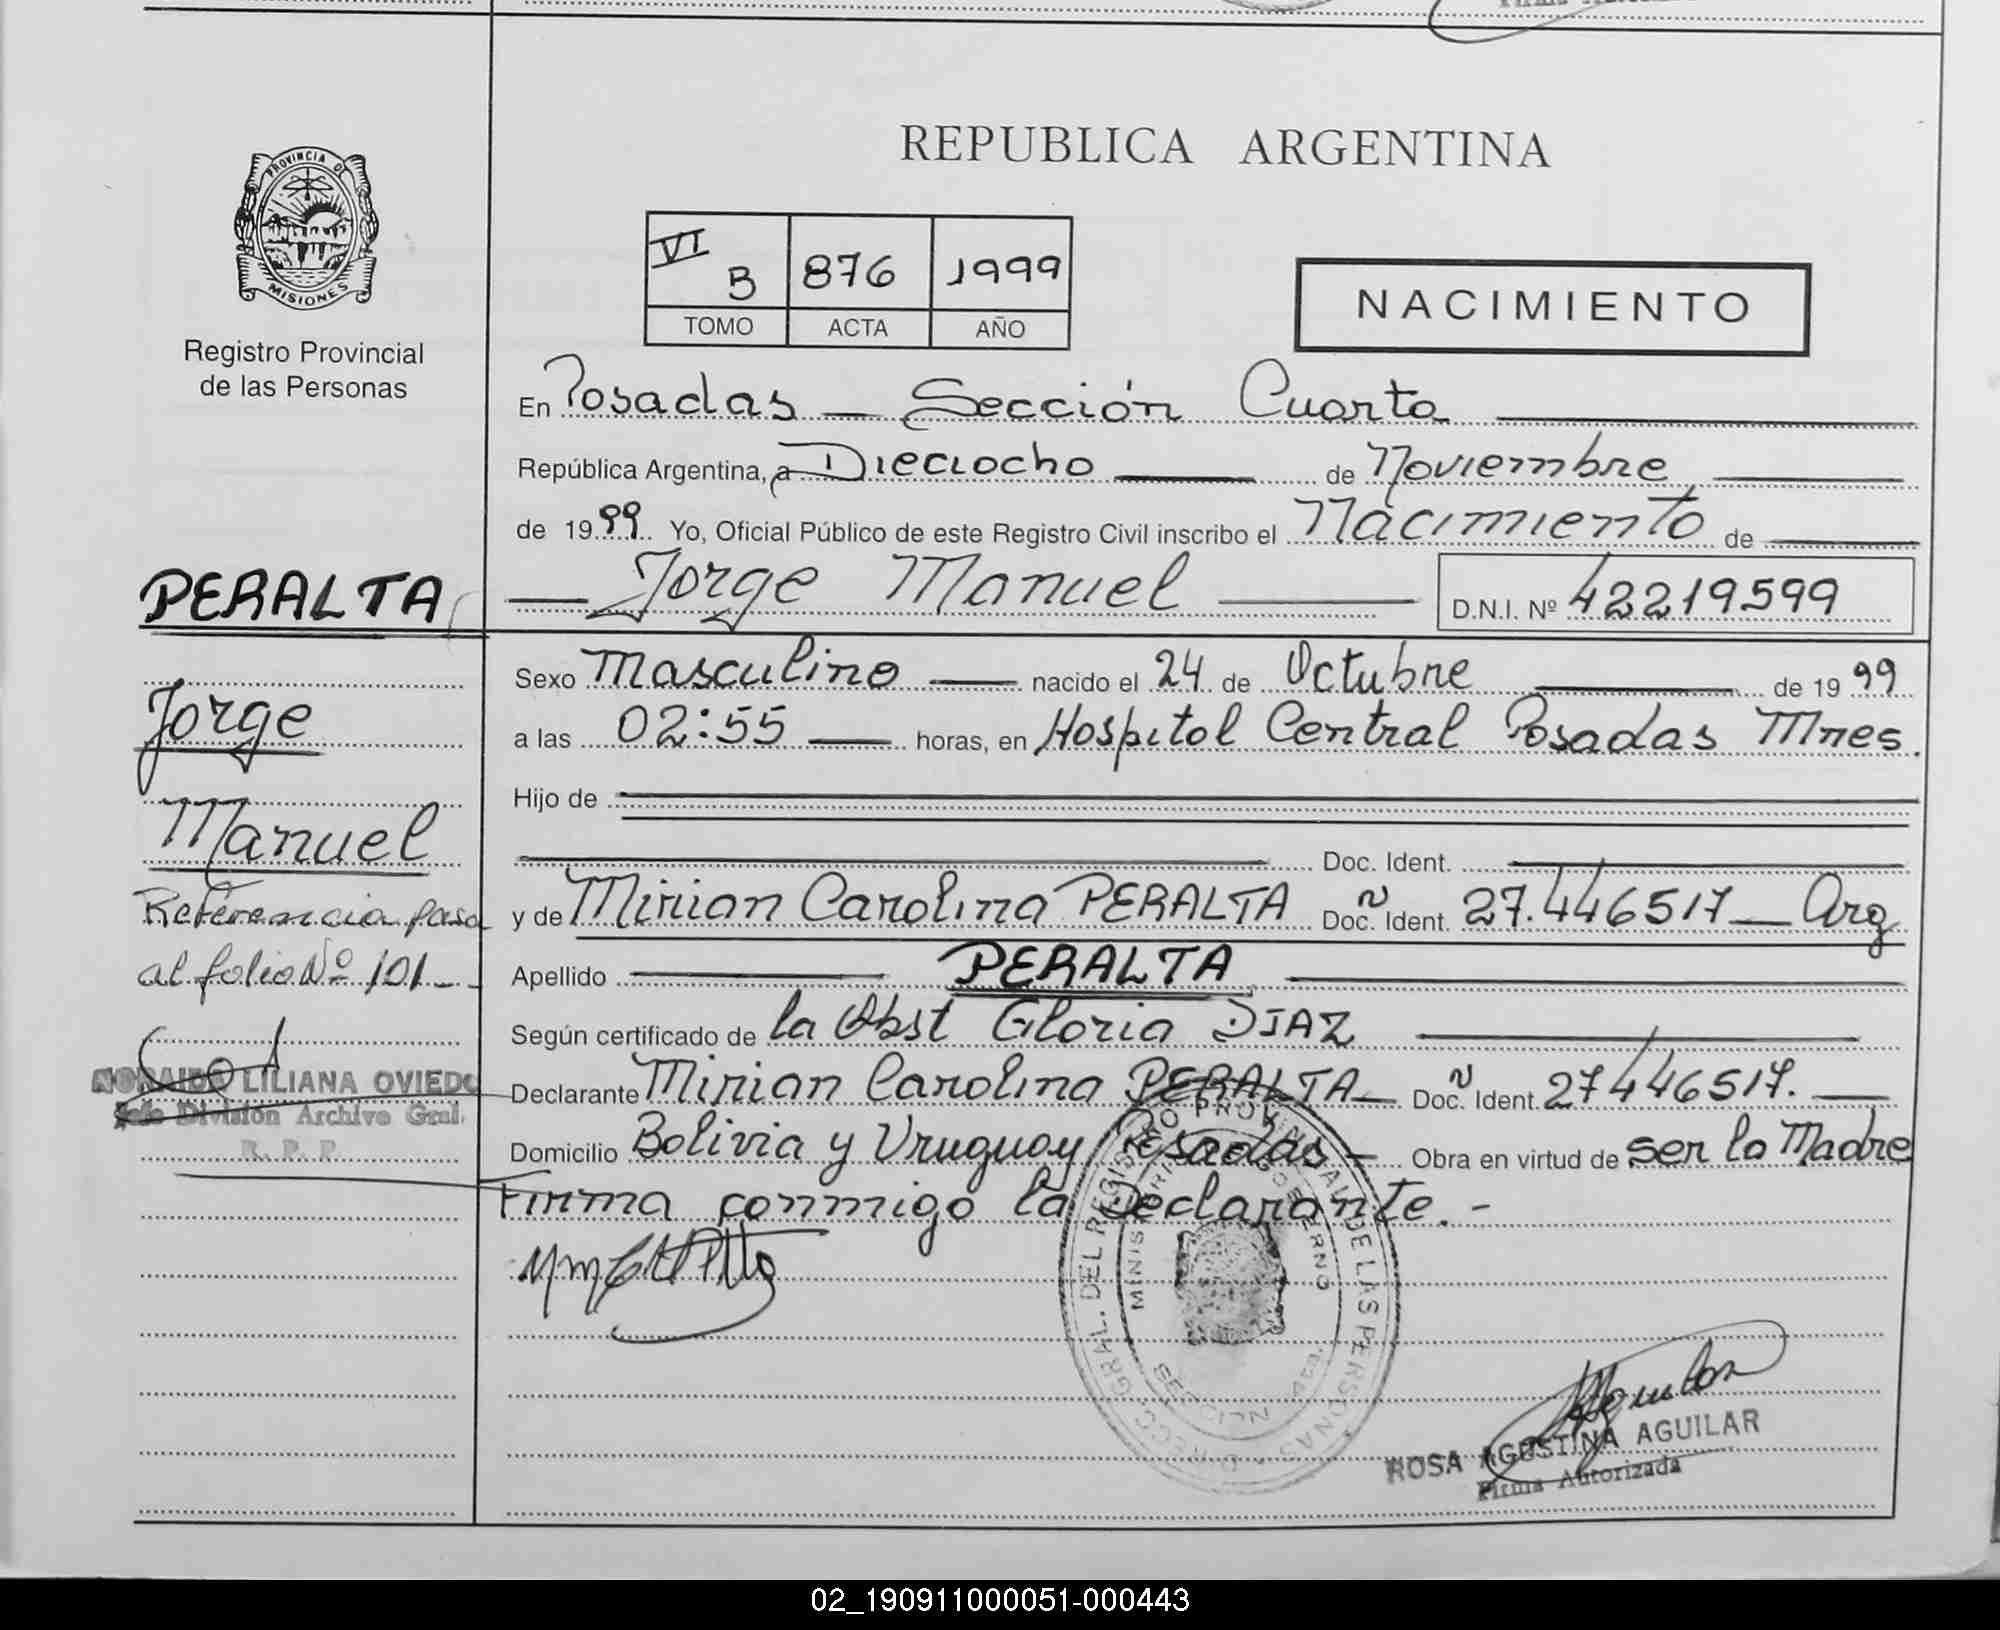 PROVINCIA DE
MISIONES
Registro Provincial
de las Personas
REPUBLICA ARGENTINA
VI B 876 1999
TOMO ACTA AÑO
NACIMIENTO
En Posadas — Sección Cuarta
República Argentina, a Dieciocho de Noviembre
de 1999 Yo, Oficial Público de este Registro Civil inscribo el Nacimiento de
Jorge Manuel D.N.I. Nº 42219599
PERALTA
Jorge
Manuel
Referencia pasa
al folio Nº 101 - -
NORAIDA LILIANA OVIEDO
Jefe División Archivo Gral.
R. P. P.
Sexo Masculino nacido el 24 de Octubre de 1999
a las 02:55 horas, en Hospital Central Posadas Mnes.
Hijo de
Doc. Ident.
y de Mirian Carolina PERALTA Doc. Ñ Ident. 27.446517 — Arg
Apellido PERALTA
Según certificado de la Obst Gloria DIAZ
Declarante Mirian Carolina PERALTA — Doc. Ñ Ident. 27446517. —
Domicilio Bolivia y Uruguay Posadas — Obra en virtud de ser la Madre
Firma conmigo la Declarante. -
DIRECC. GRAL. DEL REGISTRO PROVINCIAL DE LAS PERSONAS
ROSA AGUSTINA AGUILAR
Firma Autorizada
02_190911000051-000443